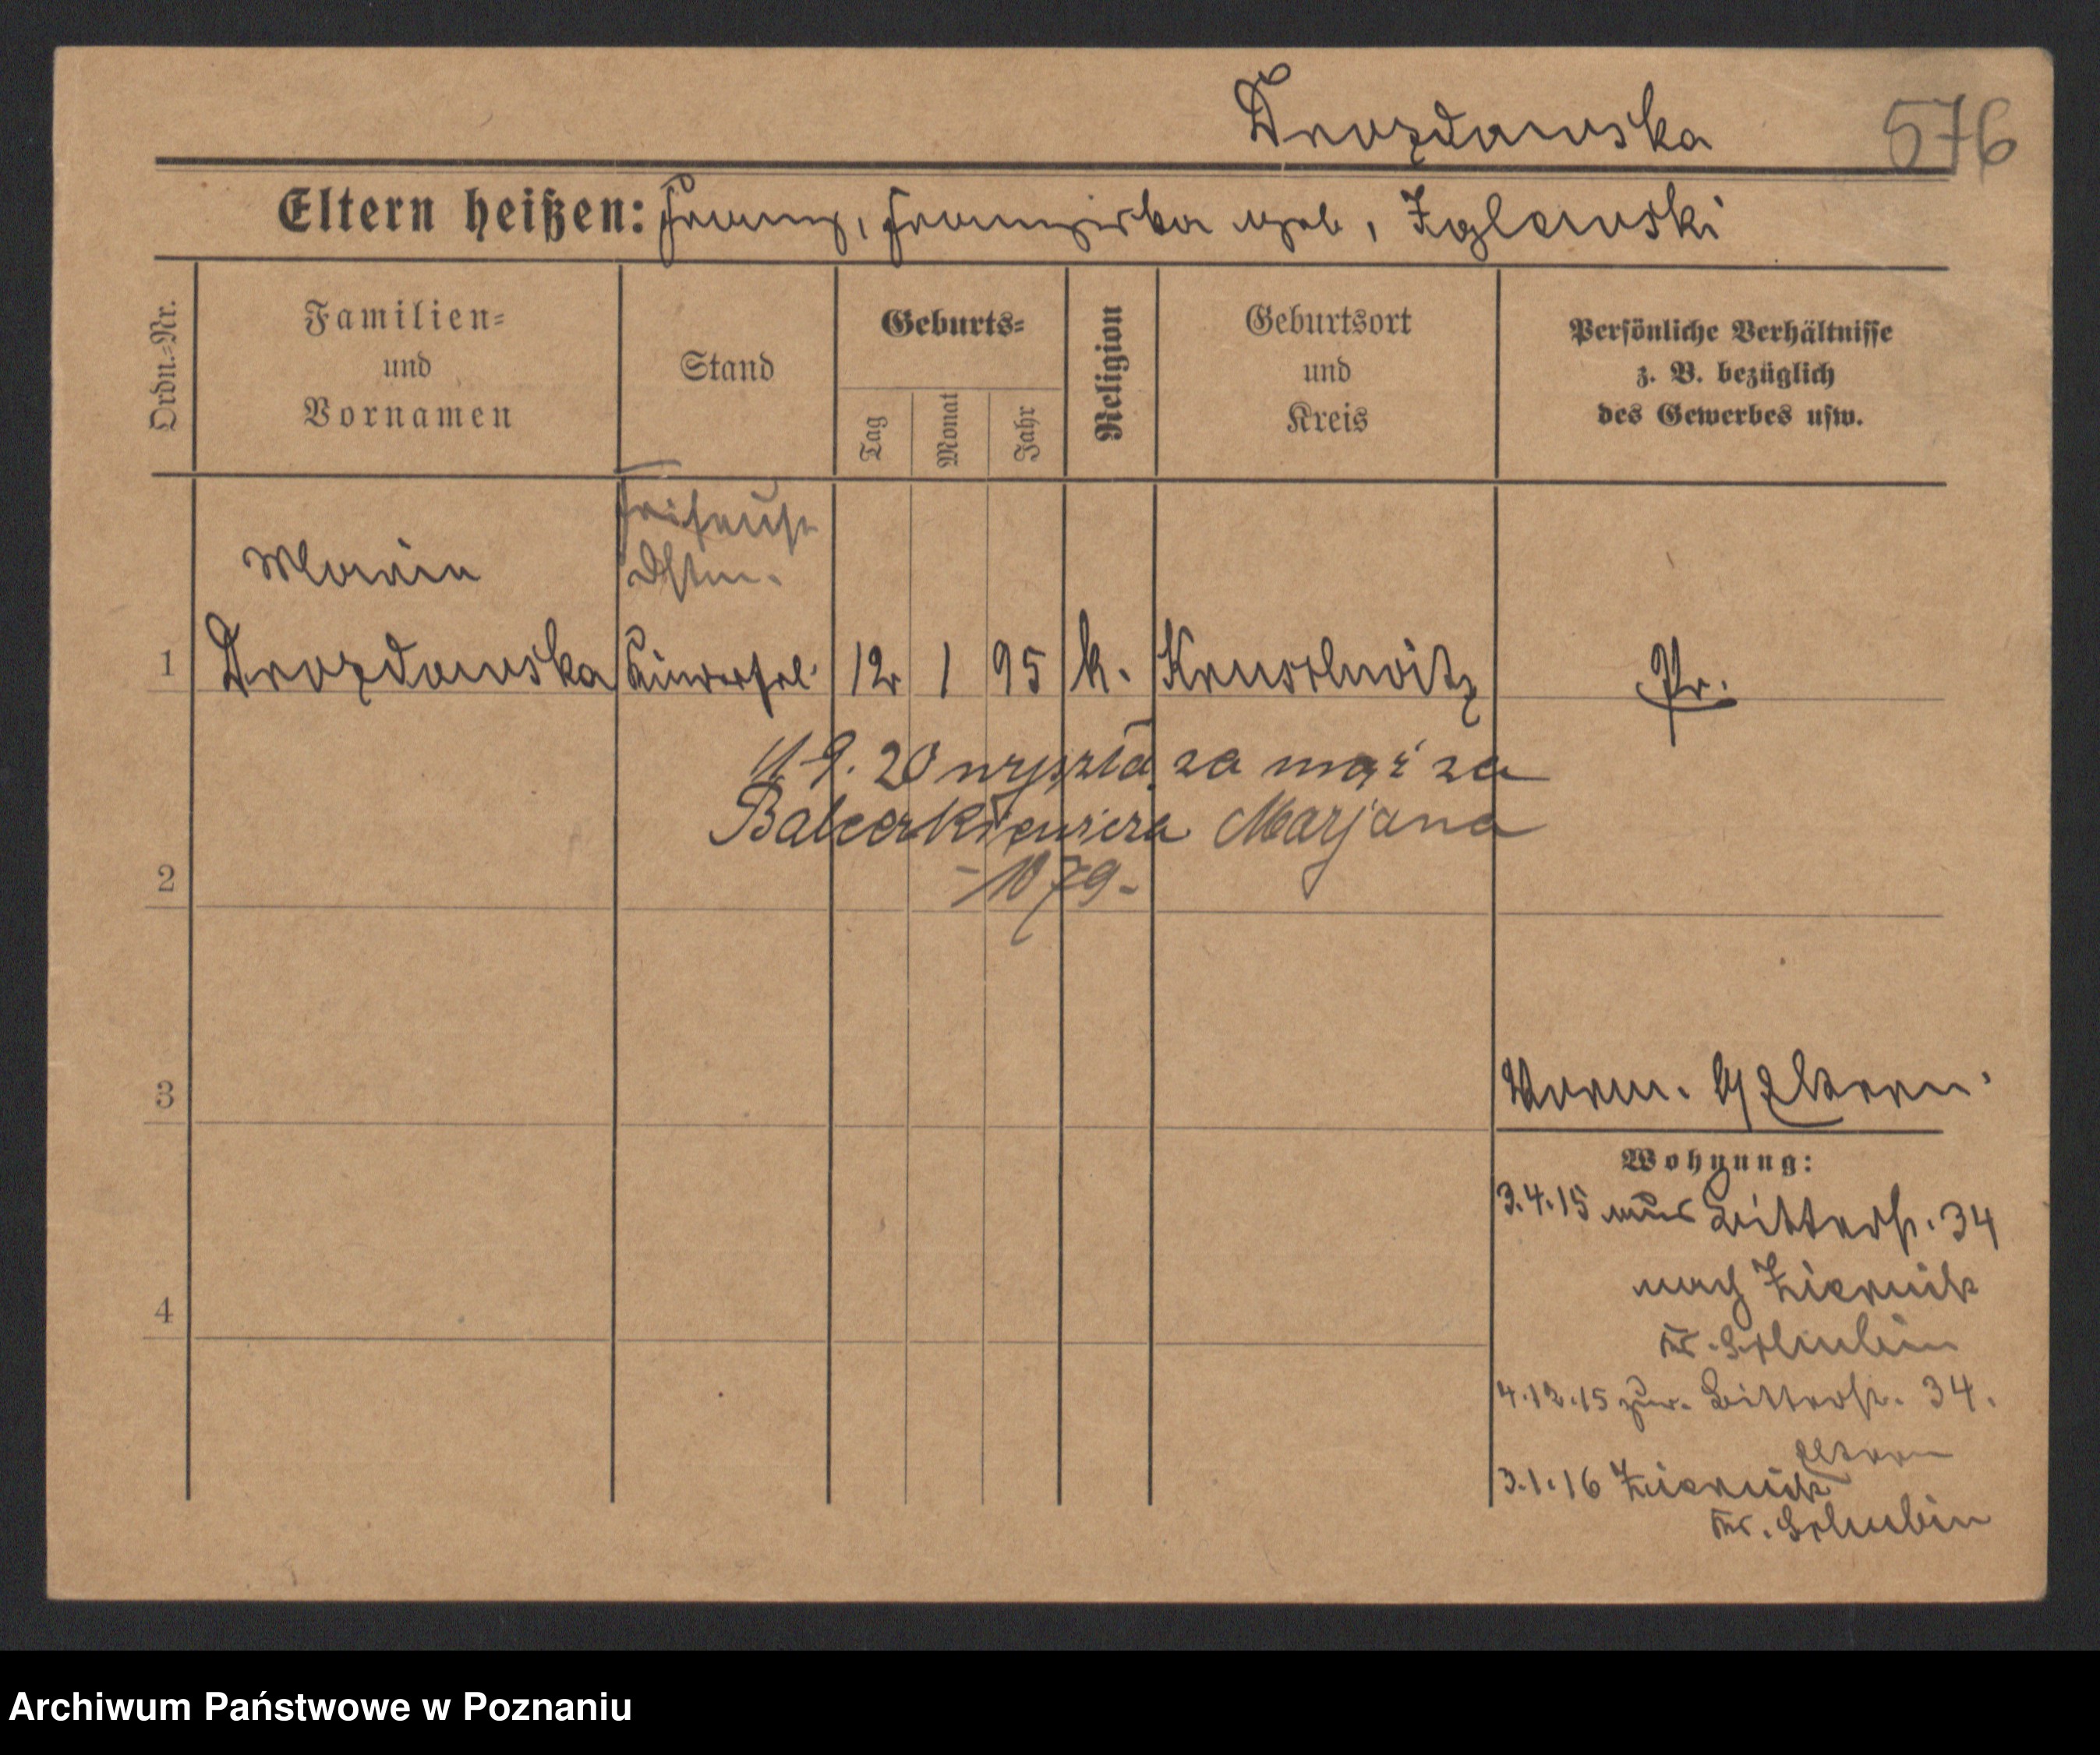 Drozdowska 576
Eltern heißen: Franz, Franziska geb. Zglewski
Ordn.=Nr.
Familien=
und
Vornamen
Stand
Geburts=
Tag
Monat
Jahr
Religion
Geburtsort
und
Kreis
Persönliche Verhältnisse
z. B. bezüglich
des Gewerbes usw.
Friseuse
Maria
1 Drozdowska 12 1 95 k. Kruschwitz Pr.
11 9. 20 wyszła za mąż za
Balcerkiewicza Marjana
2
3
Eltern
Wohnung:
3.4.15 aus Bitterstr. 34
nach Ziernik
Kr. Schubin
4
4.12.15 zur. Bitterstr. 34.
Eltern
3.1.16 Ziernik
Kr. Schubin
Archiwum Państwowe w Poznaniu